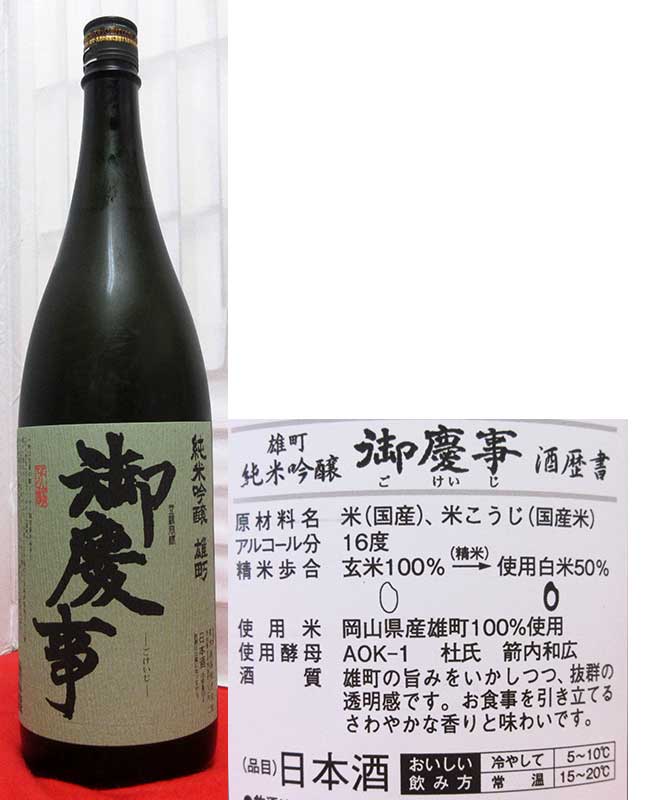 純米吟醸 雄町
御慶事
―ごけいじ―
雄町
純米吟醸
御慶事
ごけいじ
酒歴書
原材料名 米(国産)、米こうじ(国産米)
アルコール分 16度
精米歩合 玄米100% (精米)→ 使用白米50%
使用米 岡山県産雄町100%使用
使用酵母 AOK-1 杜氏 箭内和広
酒質 雄町の旨みをいかしつつ、抜群の
透明感です。お食事を引き立てる
さわやかな香りと味わいです。
(品目)日本酒
おいしい飲み方
冷やして 5~10℃
常温 15~20℃